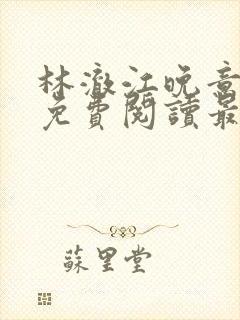 林澈江晚音
免費閱讀最
蘇里堂